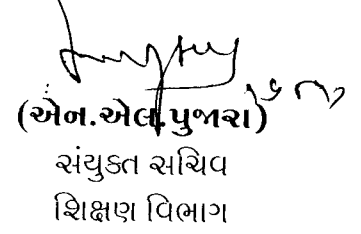 (એન.એલ.પુજારા)
સંયુક્ત સચિવ
શિક્ષણ વિભાગ